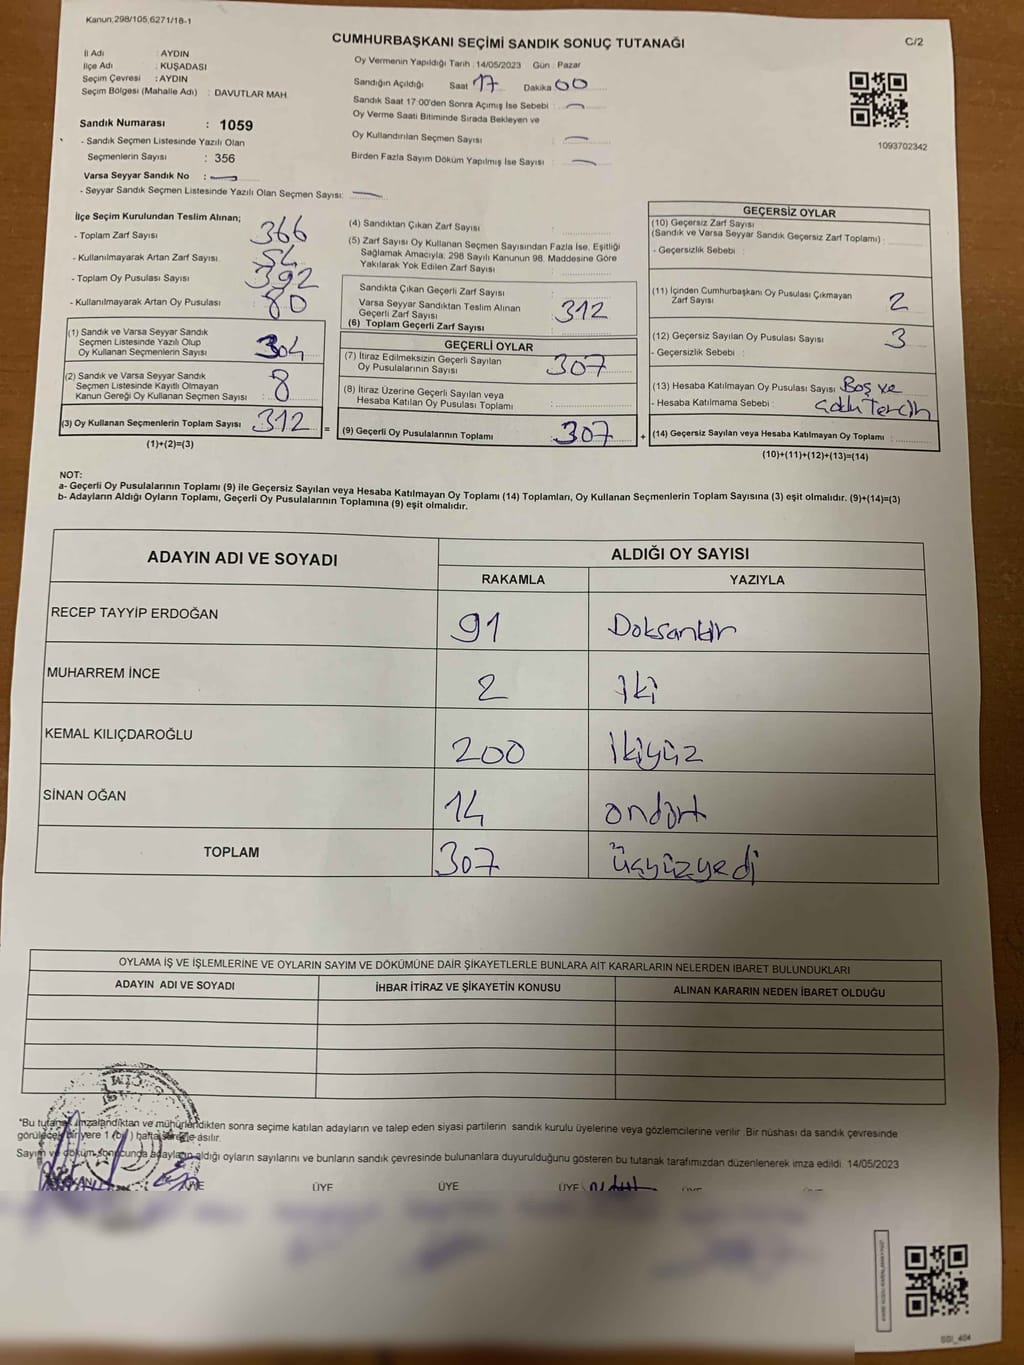 Kanun;298/105,6271/18-1
CUMHURBAŞKANI SEÇİMİ SANDIK SONUÇ TUTANAĞI
C/2
İl Adı : AYDIN
İlçe Adı : KUŞADASI
Seçim Çevresi : AYDIN
Seçim Bölgesi (Mahalle Adı) : DAVUTLAR MAH.
Sandık Numarası : 1059
- Sandık Seçmen Listesinde Yazılı Olan
Seçmenlerin Sayısı : 356
Varsa Seyyar Sandık No :
- Seyyar Sandık Seçmen Listesinde Yazılı Olan Seçmen Sayısı:
Oy Vermenin Yapıldığı Tarih : 14/05/2023 Gün : Pazar
Sandığın Açıldığı Saat 17 Dakika 00
Sandık Saat 17:00'den Sonra Açımış İse Sebebi :
Oy Verme Saati Bitiminde Sırada Bekleyen ve
Oy Kullandırılan Seçmen Sayısı :
Birden Fazla Sayım Döküm Yapılmış İse Sayısı :
1093702342
İlçe Seçim Kurulundan Teslim Alınan;
- Toplam Zarf Sayısı 366
- Kullanılmayarak Artan Zarf Sayısı 54
- Toplam Oy Pusulası Sayısı 392
- Kullanılmayarak Artan Oy Pusulası 80
(1) Sandık ve Varsa Seyyar Sandık
Seçmen Listesinde Yazılı Olup
Oy Kullanan Seçmenlerin Sayısı 304
(2) Sandık ve Varsa Seyyar Sandık
Seçmen Listesinde Kayıtlı Olmayan
Kanun Gereği Oy Kullanan Seçmen Sayısı : 8
(3) Oy Kullanan Seçmenlerin Toplam Sayısı 312 =
(1)+(2)=(3)
(4) Sandıktan Çıkan Zarf Sayısı :
(5) Zarf Sayısı Oy Kullanan Seçmen Sayısından Fazla İse, Eşitliği
Sağlamak Amacıyla, 298 Sayılı Kanunun 98. Maddesine Göre
Yakılarak Yok Edilen Zarf Sayısı :
Sandıkta Çıkan Geçerli Zarf Sayısı :
Varsa Seyyar Sandıktan Teslim Alınan
Geçerli Zarf Sayısı :
(6) Toplam Geçerli Zarf Sayısı : 312
GEÇERLİ OYLAR
(7) İtiraz Edilmeksizin Geçerli Sayılan
Oy Pusulalarının Sayısı : 307
(8) İtiraz Üzerine Geçerli Sayılan veya
Hesaba Katılan Oy Pusulası Toplamı :
(9) Geçerli Oy Pusulalarının Toplamı 307 +
GEÇERSİZ OYLAR
(10) Geçersiz Zarf Sayısı
(Sandık ve Varsa Seyyar Sandık Geçersiz Zarf Toplamı) :
- Geçersizlik Sebebi :
(11) İçinden Cumhurbaşkanı Oy Pusulası Çıkmayan
Zarf Sayısı 2
(12) Geçersiz Sayılan Oy Pusulası Sayısı 3
- Geçersizlik Sebebi :
(13) Hesaba Katılmayan Oy Pusulası Sayısı : Boş ve
- Hesaba Katılmama Sebebi : Çoklu Tercih
(14) Geçersiz Sayılan veya Hesaba Katılmayan Oy Toplamı :
(10)+(11)+(12)+(13)=(14)
NOT:
a- Geçerli Oy Pusulalarının Toplamı (9) ile Geçersiz Sayılan veya Hesaba Katılmayan Oy Toplamı (14) Toplamları, Oy Kullanan Seçmenlerin Toplam Sayısına (3) eşit olmalıdır. (9)+(14)=(3)
b- Adayların Aldığı Oyların Toplamı, Geçerli Oy Pusulalarının Toplamına (9) eşit olmalıdır.
ADAYIN ADI VE SOYADI ALDIĞI OY SAYISI
RAKAMLA YAZIYLA
RECEP TAYYİP ERDOĞAN 91 Doksanbir
MUHARREM İNCE 2 iki
KEMAL KILIÇDAROĞLU 200 ikiyüz
SİNAN OĞAN 14 ondört
TOPLAM 307 üçyüzyedi
OYLAMA İŞ VE İŞLEMLERİNE VE OYLARIN SAYIM VE DÖKÜMÜNE DAİR ŞİKAYETLERLE BUNLARA AİT KARARLARIN NELERDEN İBARET BULUNDUKLARI
ADAYIN ADI VE SOYADI İHBAR İTİRAZ VE ŞİKAYETİN KONUSU ALINAN KARARIN NEDEN İBARET OLDUĞU
*Bu tutanak imzalandıktan ve mühürlendikten sonra seçime katılan adayların ve talep eden siyasi partilerin sandık kurulu üyelerine veya gözlemcilerine verilir. Bir nüshası da sandık çevresinde
görülecek bir yere 1 (bir) hafta süreyle asılır.
Sayım ve döküm sonucunda adayların aldığı oyların sayılarını ve bunların sandık çevresinde bulunanlara duyurulduğunu gösteren bu tutanak tarafımızdan düzenlenerek imza edildi. 14/05/2023
ÜYE ÜYE ÜYE